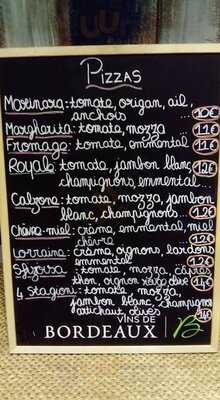 PIZZAS
Marinara: tomate, origan, ail,
anchois ... 10€
Margherita: tomate, mozza ... 11€
Fromage: tomate, emmental 11€
Royale: tomate, jambon blanc, 12€
champignons, emmental...
Calzone: tomate, mozza, jambon
blanc, champignons... 12€
Chèvre-miel: crème, emmental, miel
chèvre 12€
Lorraine: crème, oignons, lardons
emmental 12€
: tomate, mozza, câpres
thon, oignon rouge, olive 14€
4 Stagioni: tomate, mozza,
jambon blanc, champignons
artichaut, olives 14€
VINS DE
BORDEAUX B